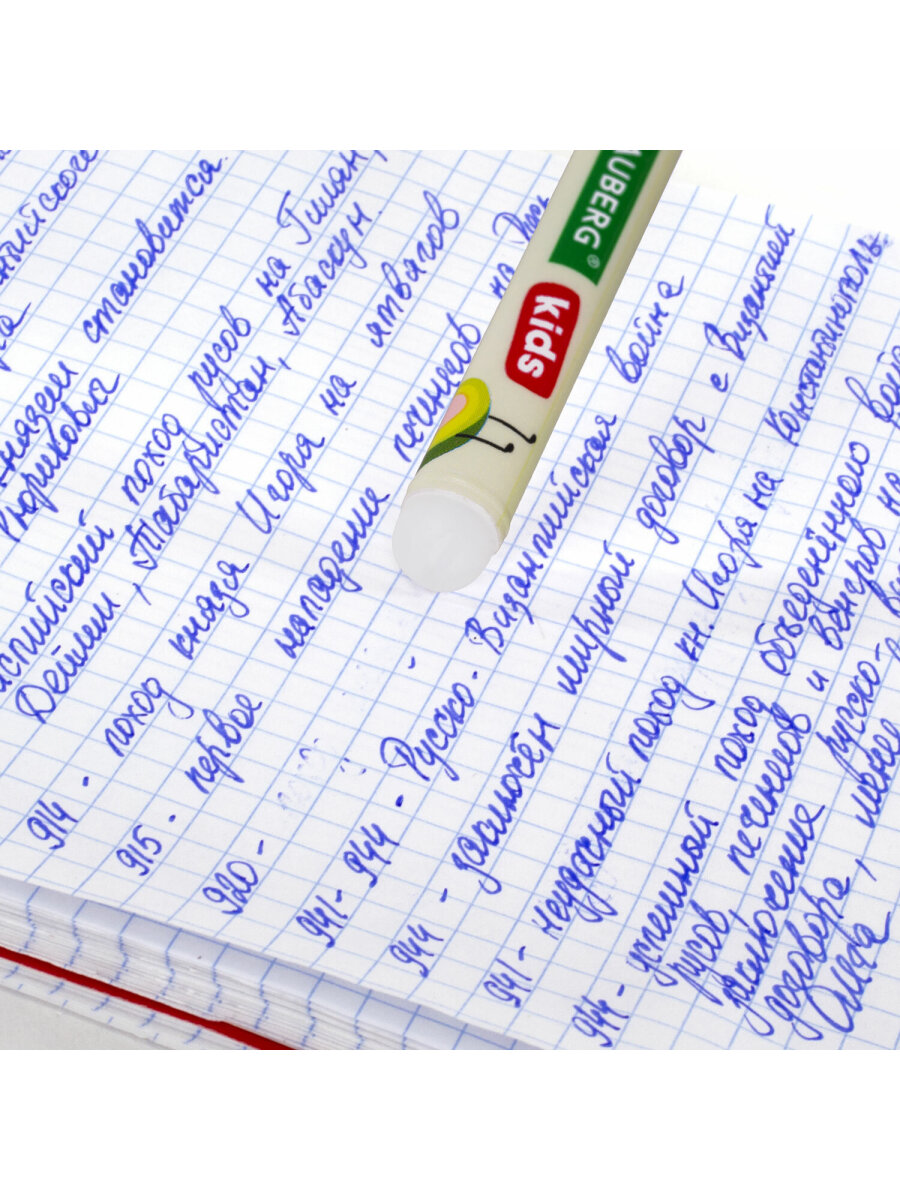 князем становится
Рюрикович
поход русов на Гилян,
Дейлем, Табаристан, Абаскун.
914 - поход князя Игоря на ятвягов
915 - первое нападение печенегов на Русь
920 -
941 - 944 - Русско - Византийская война
944 - заключён мирный договор с Византией
941 - неудачный поход кн. Игоря на Константинополь
944 - успешный поход объединённого
русов, печенегов и венгров на
заключение русско-
договора, менее
AUBERG®
kids